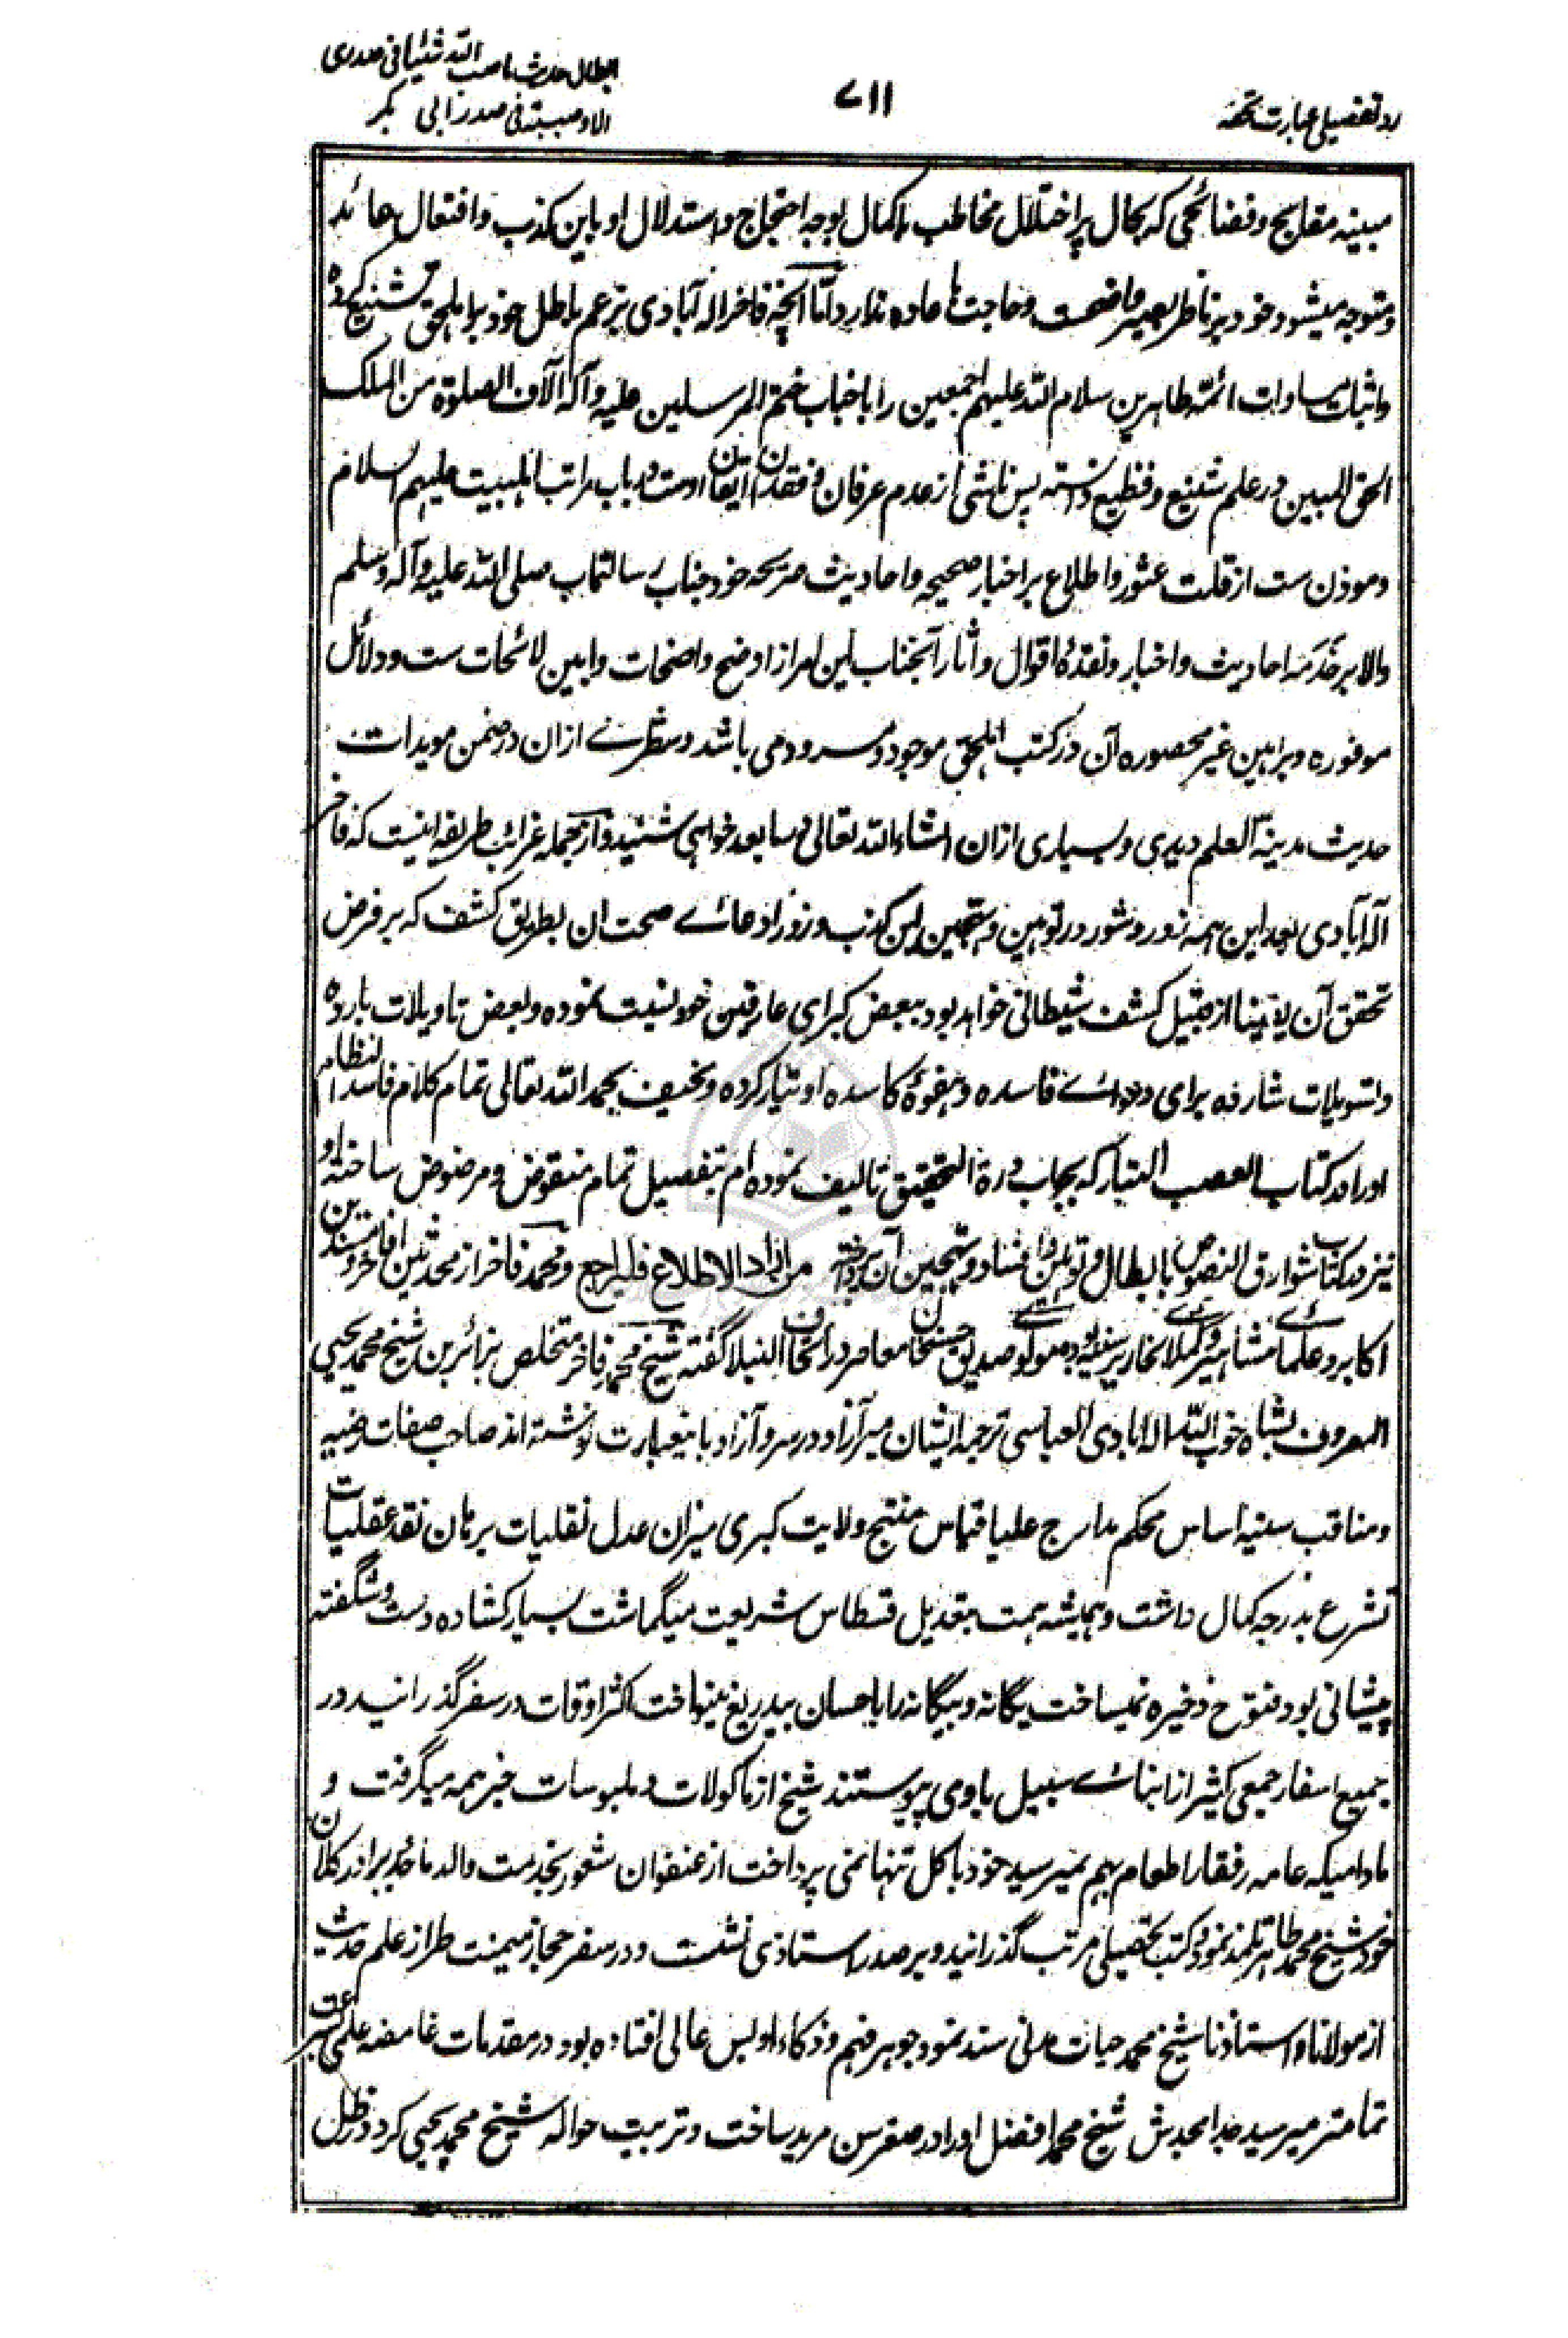 رد تفصیلی عبارت تحفه
۷۱۱
ابطال حدیث ما صب الله شیئا فی صدری
الا وصببته فی صدر ابی بکر
مبینه مقابح و فضائحی که بحال پر اختلال مخاطب با کمال بوجه احتجاج و استدلال او باین کذب و افتعال عائد
و متوجه میشود خود بر ناظر بصیر واضحست و حاجت باعاده ندارد اما آنچه فاخر اله آبادی بزعم باطل خود بر اهلحق تشنیع کرده
و اثبات مساوات ائمه طاهرین سلام الله علیهم اجمعین را با جناب ختم المرسلین علیه و آله آلاف الصلوة من الملک
الحق المبین در علم شنیع و فظیع دانسته پس ناشی از عدم عرفان و فقدان ایقان اوست در باب مراتب اهلبیت علیهم السلام
و موذن ست از قلت عثور و اطلاع بر اخبار صحیحه و احادیث صریحه خود جناب رسالتماب صلی الله علیه و آله و سلم
والا بر خدمه احادیث و اخبار و نقده اقوال و آثار آنجناب این امر از اوضح واضحات و ابین لائحات ست و دلائل
موفوره و براهین غیر محصوره آن در کتب اهلحق موجود و مسرود می باشد و شطری ازان در ضمن مویدات
حدیث مدینة العلم دیدی و بسیاری ازان انشاء الله تعالی فیما بعد خواهی شنید و از جمله غرائب طریفه اینست که فاخر
اله آبادی بعد این همه زور و شور در توهین و تهجین این کذب و زور ادعای صحت ان بطریق کشف که بر فرض
تحقق آن یقینا از قبیل کشف شیطانی خواهد بود ببعض کبرای عارفین خود نسبت نموده و بعض تاویلات بارده
و تسویلات شارده برای دعوای فاسده و هفوه کاسده او تیار کرده و نحیف بحمد الله تعالی تمام کلام فاسد النظام
او را در کتاب العضب البتار که بجواب درة التحقیق تالیف نموده ام بتفصیل تمام منقوض و مرضوض ساخته او
نیز در کتاب شوارق النصوص بابطال و توهین و افساد و تهجین آن پرداخته من اراد الاطلاع فلیراجع و محمد فاخر از محدثین افاخر و مسندین
اکابر و علمای مشاهیر و کملای نحاریر سنیه بوده مولوی صدیق حسنخان معاصر در اتحاف النبلا گفته شیخ محمد فاخر متخلص بزائر بن شیخ محمد یحیی
المعروف بشاه خوب الله اله ابادی العباسی ترجمه ایشان میر آزاد در سرو آزاد باینعبارت نوشته اند صاحب صفات رضیه
و مناقب سنیه اساس محکم مدارج علیا قیاس منتج ولایت کبری میزان عدل نقلیات برهان نقد عقلیات
تشرع بدرجه کمال داشت و همیشه همت بتعدیل قسطاس شریعت میگماشت بسیار کشاده دست و شگفته
پیشانی بود فتوح ذخیره نمیساخت یگانه و بیگانه را باحسان بیدریغ مینواخت اکثر اوقات در سفر گذرانید در
جمیع اسفار جمعی کثیر از ابنای سبیل با وی پیوستند شیخ از ماکولات و ملبوسات خبر همه میگرفت و
مادامیکه عامه رفقا را طعام بهم نمیرسید خود باکل تنها نمی پرداخت از عنفوان شعور بخدمت والد ماجد و برادر کلان
خود شیخ محمد طاهر تلمذ نمود و کتب تحصیلی مرتب گذرانید و بر صدر استاذی نشست و در سفر حجاز میمنت طراز علم حدیث
از مولانا و استاذنا شیخ محمد حیات مدنی سند نمود جوهر فهم و ذکاء او بس عالی افتاده بود در مقدمات غامضه علمی بسرعت
تمامتر میرسید جد امجدش شیخ محمد افضل او را در صغر سن مرید ساخت و تربیت حواله شیخ محمد یحیی کرد و در ظل